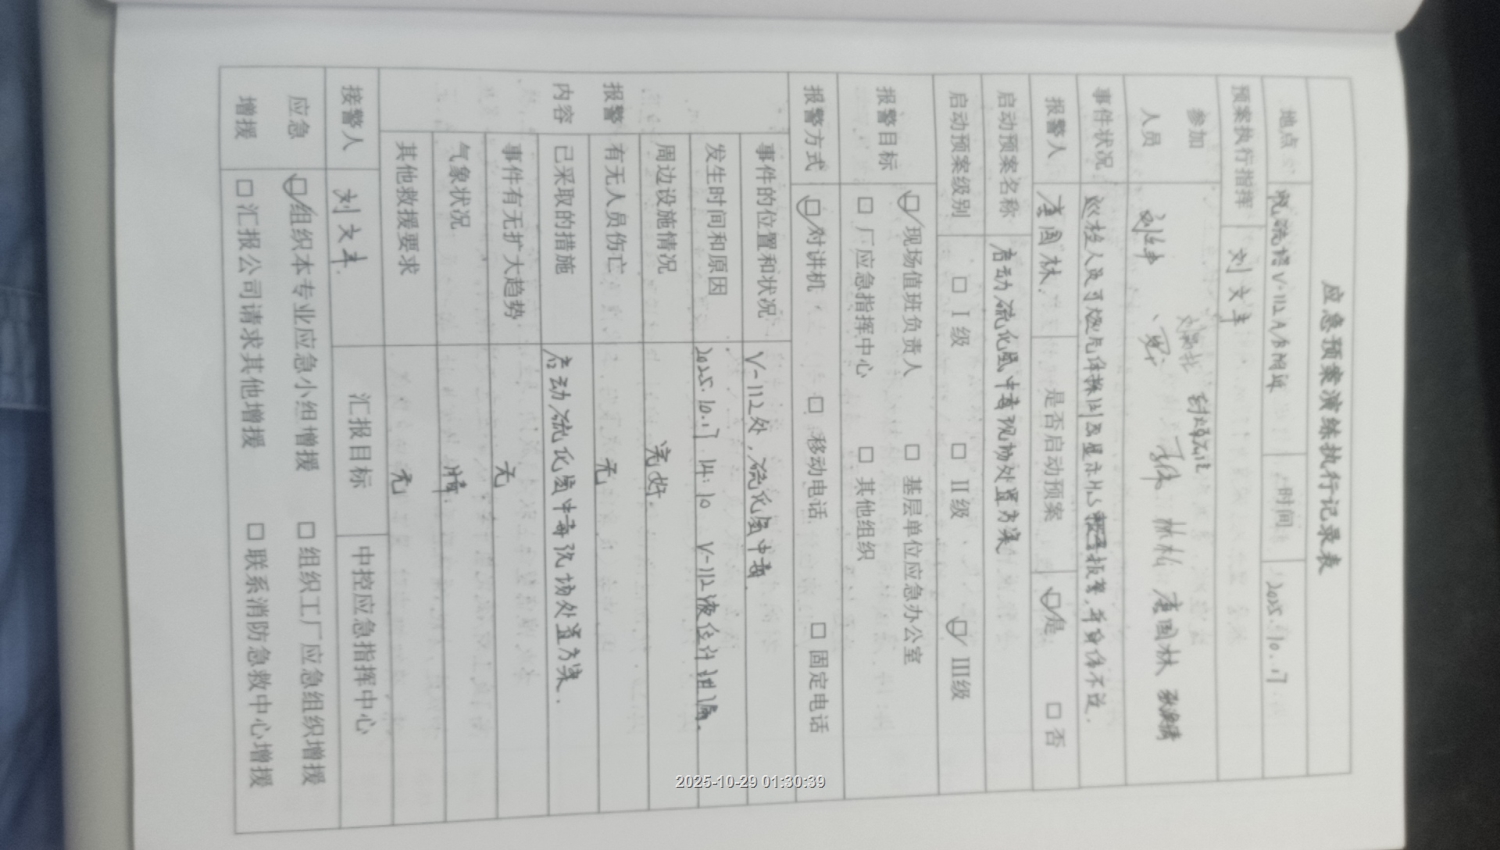 应急预案演练执行记录表
地点 脱硫塔V-112A/B附近 时间 2025.10.17
预案执行指挥 刘文丰
参加人员 林松 唐国林
事件状况 巡检人员可燃气体探测仪显示H₂S报警,并身体不适.
报警人 唐国林 是否启动预案 ☑是 □否
启动预案名称 启动硫化氢中毒现场处置方案
启动预案级别 □ I级 □ II级 ☑ III级
报警目标 ☑现场值班负责人 □ 基层单位应急办公室
□ 厂应急指挥中心 □ 其他组织
报警方式 ☑对讲机 □ 移动电话 □ 固定电话
报警内容
事件的位置和状况 V-112处,硫化氢中毒.
发生时间和原因 2025.10.17 14:10 V-112液位计泄漏.
周边设施情况 完好.
有无人员伤亡 无
已采取的措施 启动硫化氢中毒现场处置方案.
事件有无扩大趋势 无
气象状况 晴
其他救援要求 无
接警人 刘文丰 汇报目标 中控应急指挥中心
应急增援 ☑组织本专业应急小组增援 □ 组织工厂应急组织增援
□ 汇报公司请求其他增援 □ 联系消防急救中心增援
2025-10-29 01:30:39